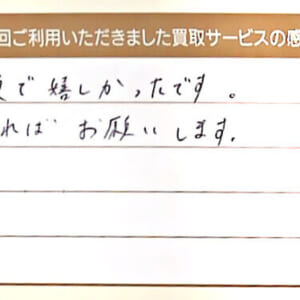 回ご利用いただきました買取サービスの感
で嬉しかったです。
ればお願いします.